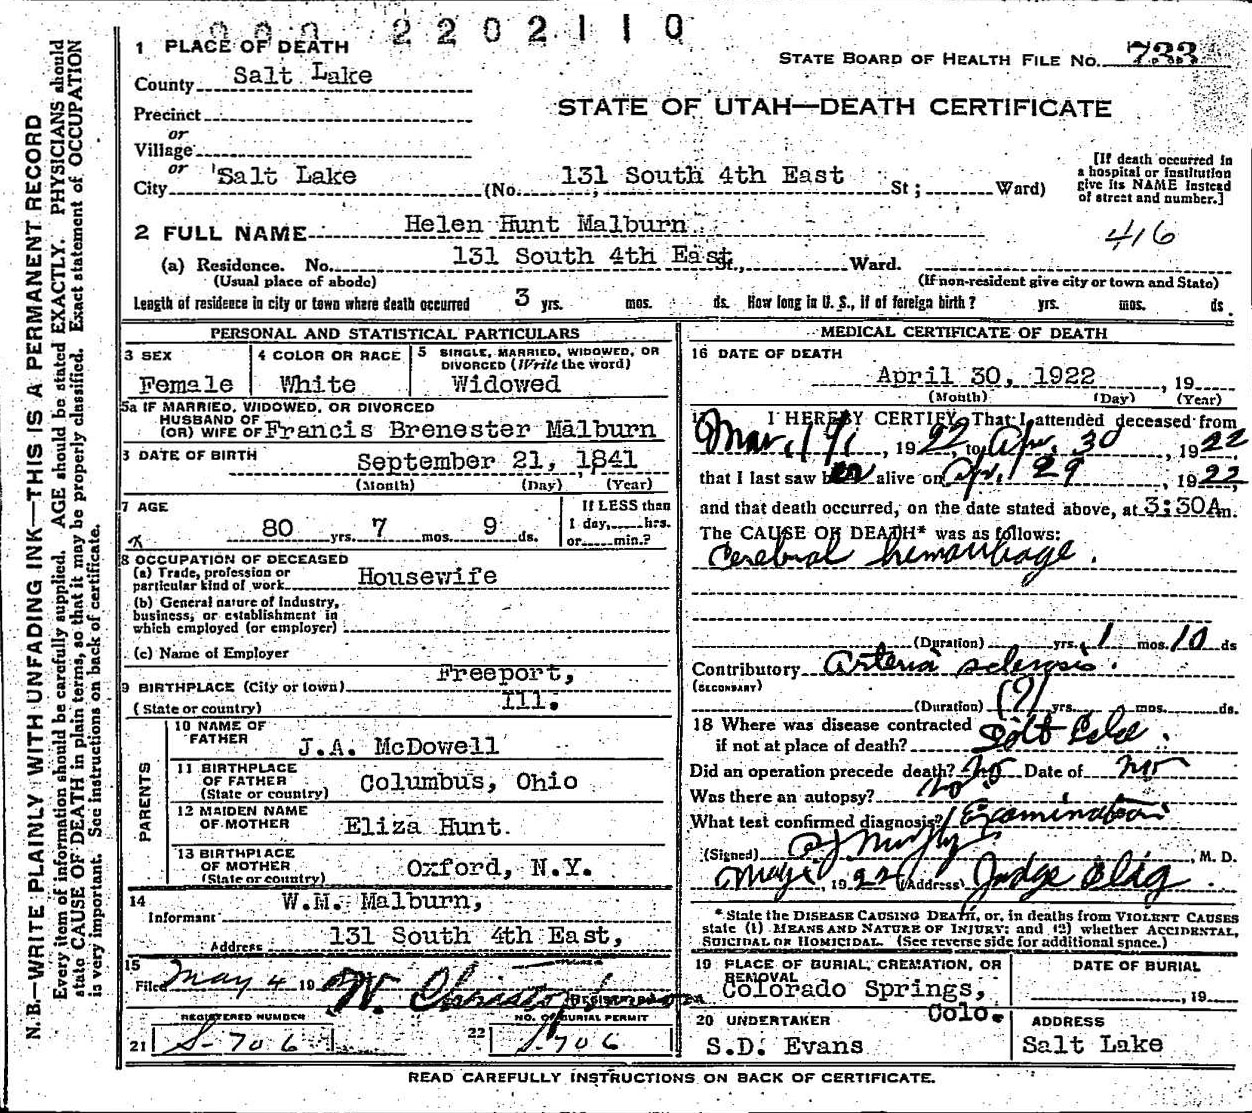 2 2 0 2 1 1 0
1 PLACE OF DEATH
STATE BOARD OF HEALTH FILE NO. 733
County Salt Lake
STATE OF UTAH—DEATH CERTIFICATE
Precinct
or
Village
or
City Salt Lake (No. 131 South 4th East St; Ward)
[If death occurred in
a hospital or institution
give its NAME instead
of street and number.]
2 FULL NAME Helen Hunt Malburn
416
(a) Residence. No. 131 South 4th East St., Ward.
(Usual place of abode) (If non-resident give city or town and State)
Length of residence in city or town where death occurred 3 yrs. mos. ds. How long in U. S., if of foreign birth? yrs. mos. ds.
PERSONAL AND STATISTICAL PARTICULARS
3 SEX
Female
4 COLOR OR RACE
White
5 SINGLE, MARRIED, WIDOWED, OR
DIVORCED (Write the word)
Widowed
5a IF MARRIED, WIDOWED, OR DIVORCED
HUSBAND OF
(OR) WIFE OF Francis Brenester Malburn
DATE OF BIRTH
September 21, 1841
(Month) (Day) (Year)
7 AGE
80 yrs. 7 mos. 9 ds.
If LESS than
1 day, hrs.
or min.?
8 OCCUPATION OF DECEASED
(a) Trade, profession or
particular kind of work Housewife
(b) General nature of industry,
business, or establishment in
which employed (or employer)
(c) Name of Employer
Freeport,
9 BIRTHPLACE (City or town)
(State or country) Ill.
PARENTS
10 NAME OF
FATHER J.A. McDowell
11 BIRTHPLACE
OF FATHER Columbus, Ohio
(State or country)
12 MAIDEN NAME
OF MOTHER Eliza Hunt.
13 BIRTHPLACE
OF MOTHER Oxford, N.Y.
(State or country)
14 W.M. Malburn,
Informant
Address 131 South 4th East,
15
Filed May 4 19 W. Christ
21 REGISTERED NUMBER
S-706
22 NO. OF BURIAL PERMIT
S-706
MEDICAL CERTIFICATE OF DEATH
16 DATE OF DEATH
April 30, 1922, 19
(Month) (Day) (Year)
I HEREBY CERTIFY, That I attended deceased from
Mar, 1922, to Apr. 30, 1922
that I last saw her alive on Apr, 29, 1922,
and that death occurred, on the date stated above, at 3:30A m.
The CAUSE OF DEATH* was as follows:
Cerebral hemorrhage.
(Duration) yrs. 1 mos. 10 ds
Contributory Arteria sclerosis.
(SECONDARY)
(Duration) (?) yrs. mos. ds.
18 Where was disease contracted
if not at place of death? Salt Lake.
Did an operation precede death? No Date of no
Was there an autopsy? no
What test confirmed diagnosis? Examination
(Signed) Murphy, M. D.
May 1, 1922 (Address) Judge Bldg.
*State the DISEASE CAUSING DEATH, or, in deaths from VIOLENT CAUSES
state (1) MEANS AND NATURE OF INJURY: and (2) whether ACCIDENTAL,
SUICIDAL OR HOMICIDAL. (See reverse side for additional space.)
19 PLACE OF BURIAL, CREMATION, OR
REMOVAL
Colorado Springs,
Colo.
DATE OF BURIAL
, 19
20 UNDERTAKER
S.D. Evans
ADDRESS
Salt Lake
READ CAREFULLY INSTRUCTIONS ON BACK OF CERTIFICATE.
N. B.—WRITE PLAINLY WITH UNFADING INK—THIS IS A PERMANENT RECORD
Every item of information should be carefully supplied. AGE should be stated EXACTLY. PHYSICIANS should
state CAUSE OF DEATH in plain terms, so that it may be properly classified. Exact statement of OCCUPATION
is very important. See instructions on back of certificate.